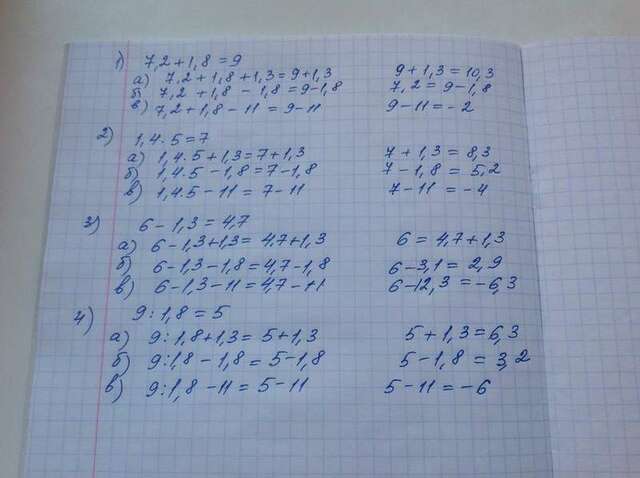 1) 7,2 + 1,8 = 9
а) 7,2 + 1,8 + 1,3 = 9 + 1,3 9 + 1,3 = 10,3
б) 7,2 + 1,8 - 1,8 = 9 - 1,8 7,2 = 9 - 1,8
в) 7,2 + 1,8 - 11 = 9 - 11 9 - 11 = - 2
2) 1,4 · 5 = 7
а) 1,4 · 5 + 1,3 = 7 + 1,3 7 + 1,3 = 8,3
б) 1,4 · 5 - 1,8 = 7 - 1,8 7 - 1,8 = 5,2
в) 1,4 · 5 - 11 = 7 - 11 7 - 11 = - 4
3) 6 - 1,3 = 4,7
а) 6 - 1,3 + 1,3 = 4,7 + 1,3 6 = 4,7 + 1,3
б) 6 - 1,3 - 1,8 = 4,7 - 1,8 6 - 3,1 = 2,9
в) 6 - 1,3 - 11 = 4,7 - 11 6 - 12,3 = - 6,3
4) 9 : 1,8 = 5
а) 9 : 1,8 + 1,3 = 5 + 1,3 5 + 1,3 = 6,3
б) 9 : 1,8 - 1,8 = 5 - 1,8 5 - 1,8 = 3,2
в) 9 : 1,8 - 11 = 5 - 11 5 - 11 = - 6